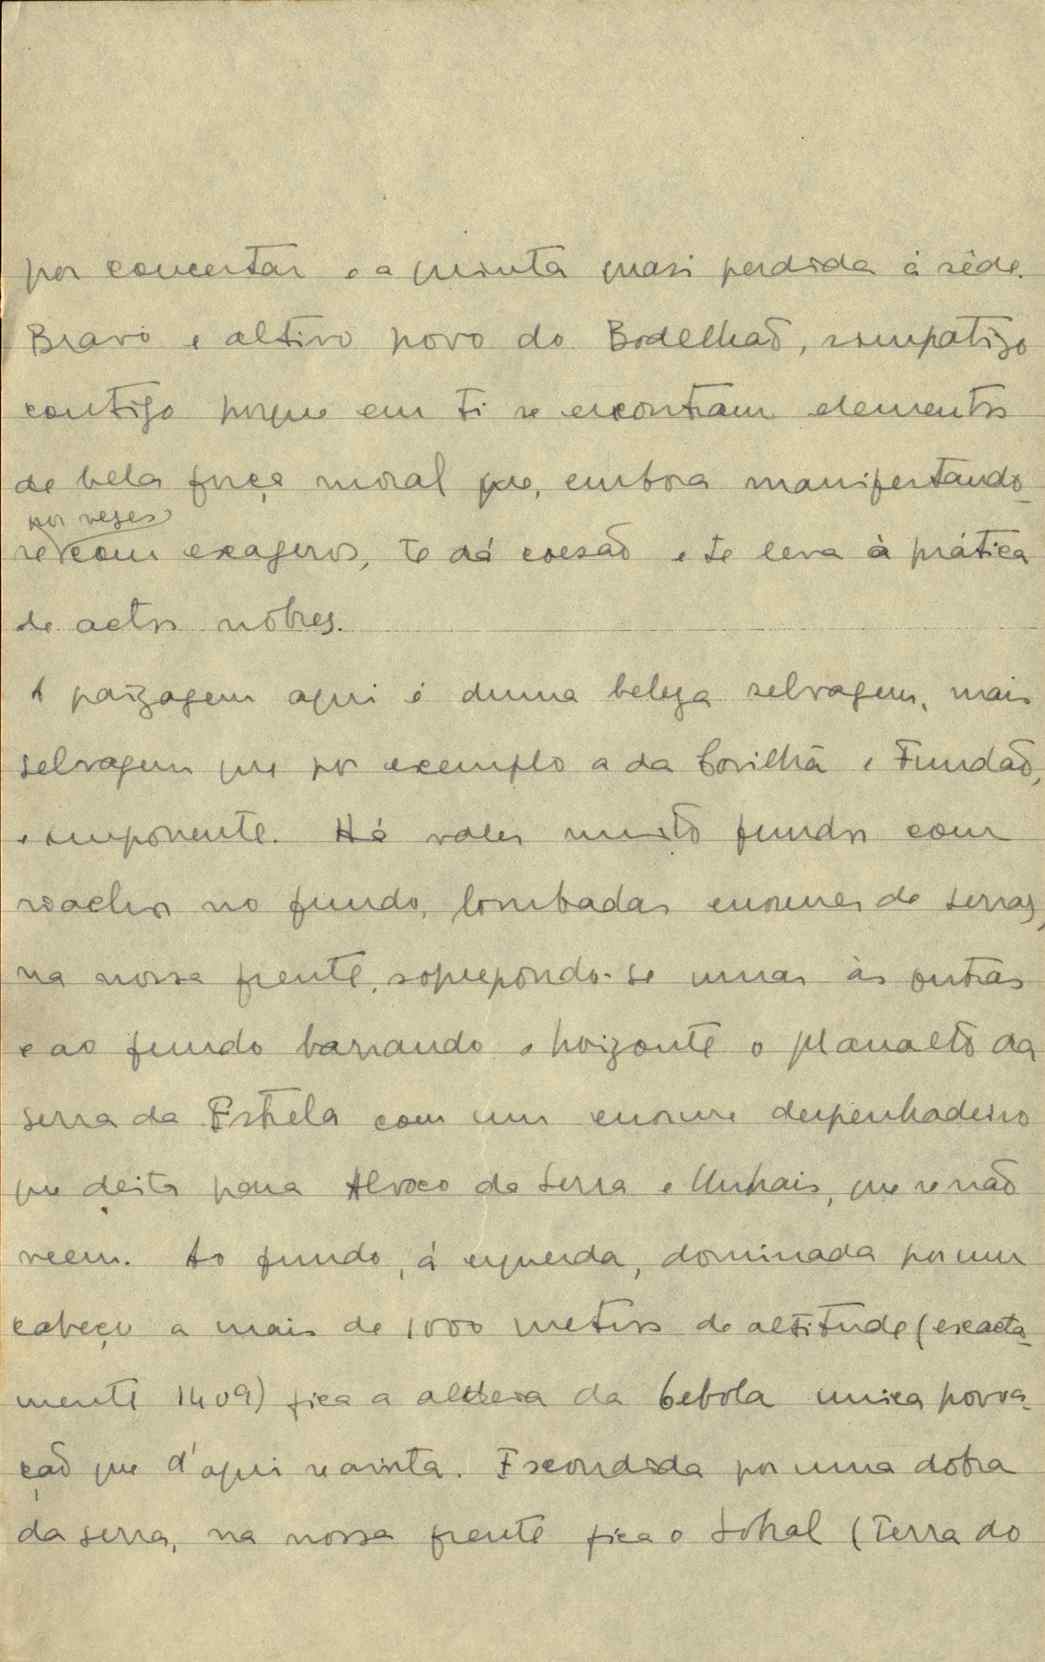 por concertar e a quinta quasi perdida á sêde.
Bravo e altivo povo do Bodelhão, simpatizo
contigo porque em ti se encontram elementos
de bela força moral que, embora manifestando-
por vezes
se com exageros, te dá coesão e te leva à prática
de actos nobres.
A paizagem aqui é duma beleza selvagem, mais
selvagem que por exemplo a da Covilhã e Fundão,
e imponente. Há vales muito fundos com
riachos no fundo, lombadas enormes de serras,
na nossa frente, sobrepondo-se umas às outras
e ao fundo barrando o horizonte o planalto da
serra da Estrela com um enorme despenhadeiro
que deita para Alvoco da Serra e Unhais, que se não
veem. Ao fundo, á esquerda, dominada por um
cabeço a mais de 1000 metros de altitude (exacta-
mente 1409) fica a aldeia da Cebola unica povoa-
ção que d'aqui se avista. Escondida por uma dobra
da serra, na nossa frente fica o Sobral (terra do